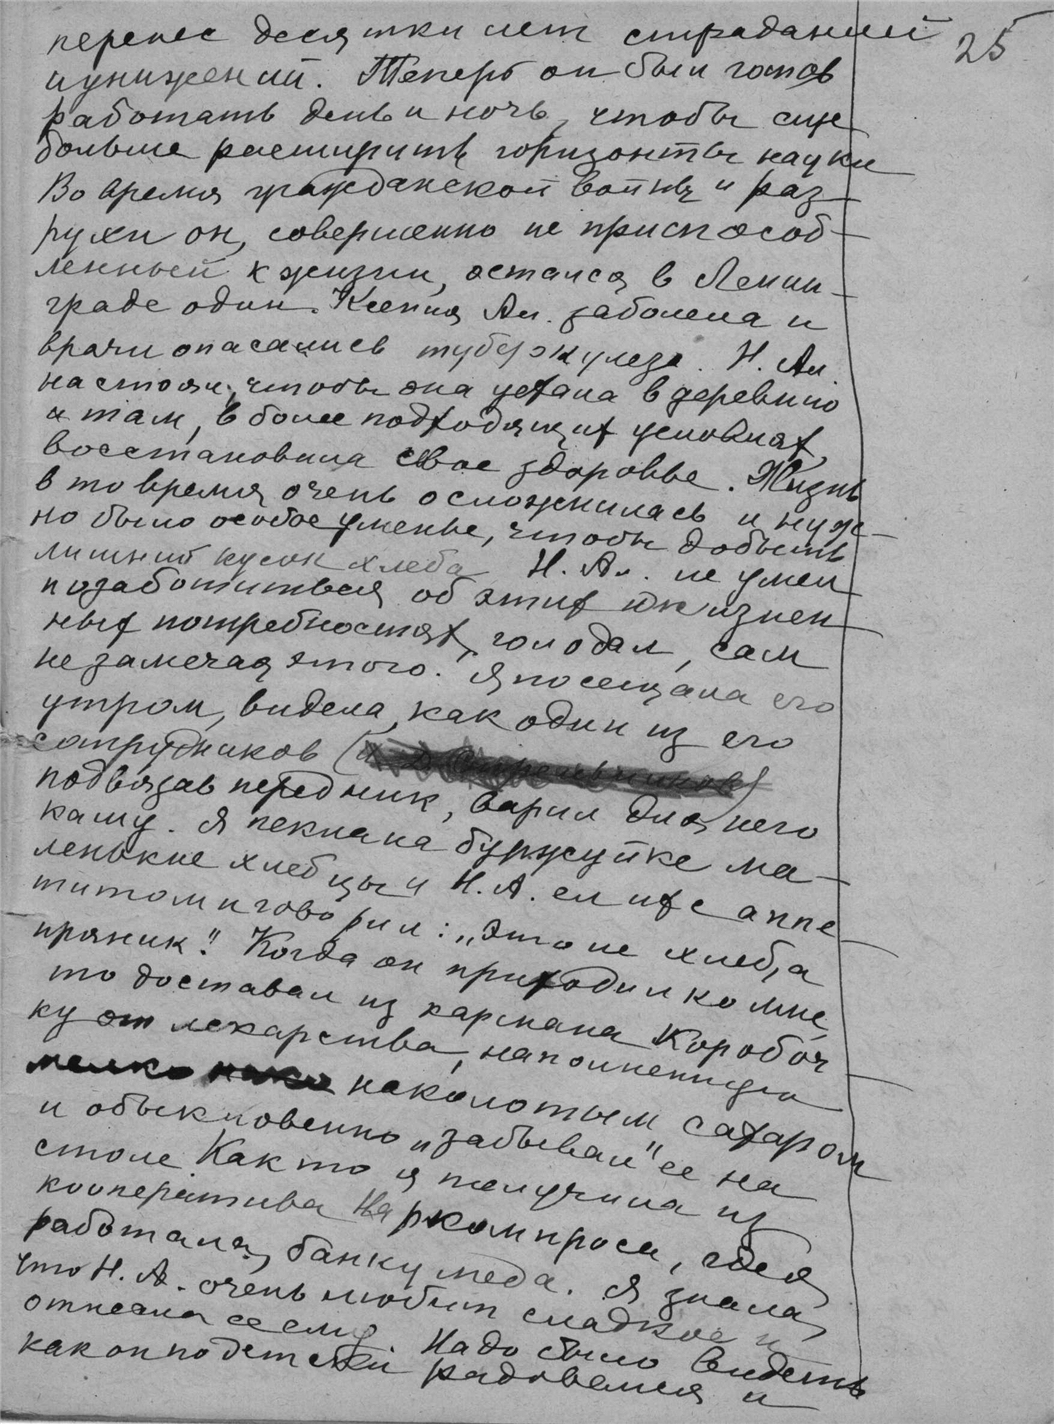 25
перенес десятки лет страданий
и унижений. Теперь он был готов
работать день и ночь, чтобы еще
больше расширить горизонты науки
Во время гражданской войны и раз-
рухи он, совершенно не приспособ-
ленный к жизни, остался в Ленин-
граде один. Ксения Ал. заболела и
врачи опасались туберкулеза. Н. Ал.
настоял, чтобы она уехала в деревню
и там, в более подходящих условиях,
восстановила свое здоровье. Жизнь
в то время очень осложнилась и нуж-
но было особое уменье, чтобы добыть
лишний кусок хлеба Н. Ал. не умел
позаботиться об этих жизнен-
ных потребностях, голодал, сам
не замечая этого. Я посещала его
утром, видела, как один из его
сотрудников (
подвязав передник, варил для него
кашу. Я пекла на буржуйке ма-
ленькие хлебцы и Н. А. ел их с аппе-
титом и говорил: „Это не хлеб, а
пряник". Когда он приходил ко мне,
то доставал из кармана коробоч-
ку от лекарства, наполненную
мелко наколотым сахаром
и обыкновенно „забывал" ее на
столе. Как то я получила из
кооператива Наркомпроса, где я
работала, банку меда. Я знала,
что Н. А. очень любит сладкое и
отнесла ее ему Надо было видеть
как он по детски радовался и